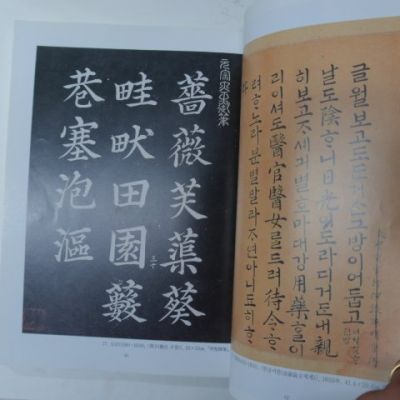 薔薇芙蕖葵
畦畎田園藪
三十
巷塞泡漚
글월보고도든거슨그방이어둡고
날도陰ᄒᆞ니日光이도라디거든내親
히보고ᄌᆞ셰긔별호마대강用藥ᄒᆞᆯ이
리이셔도醫官醫女를드려待令ᄒᆞ
려ᄒᆞ노라분별말라ᄌᆞ연아니됴히ᄒᆞ
랴